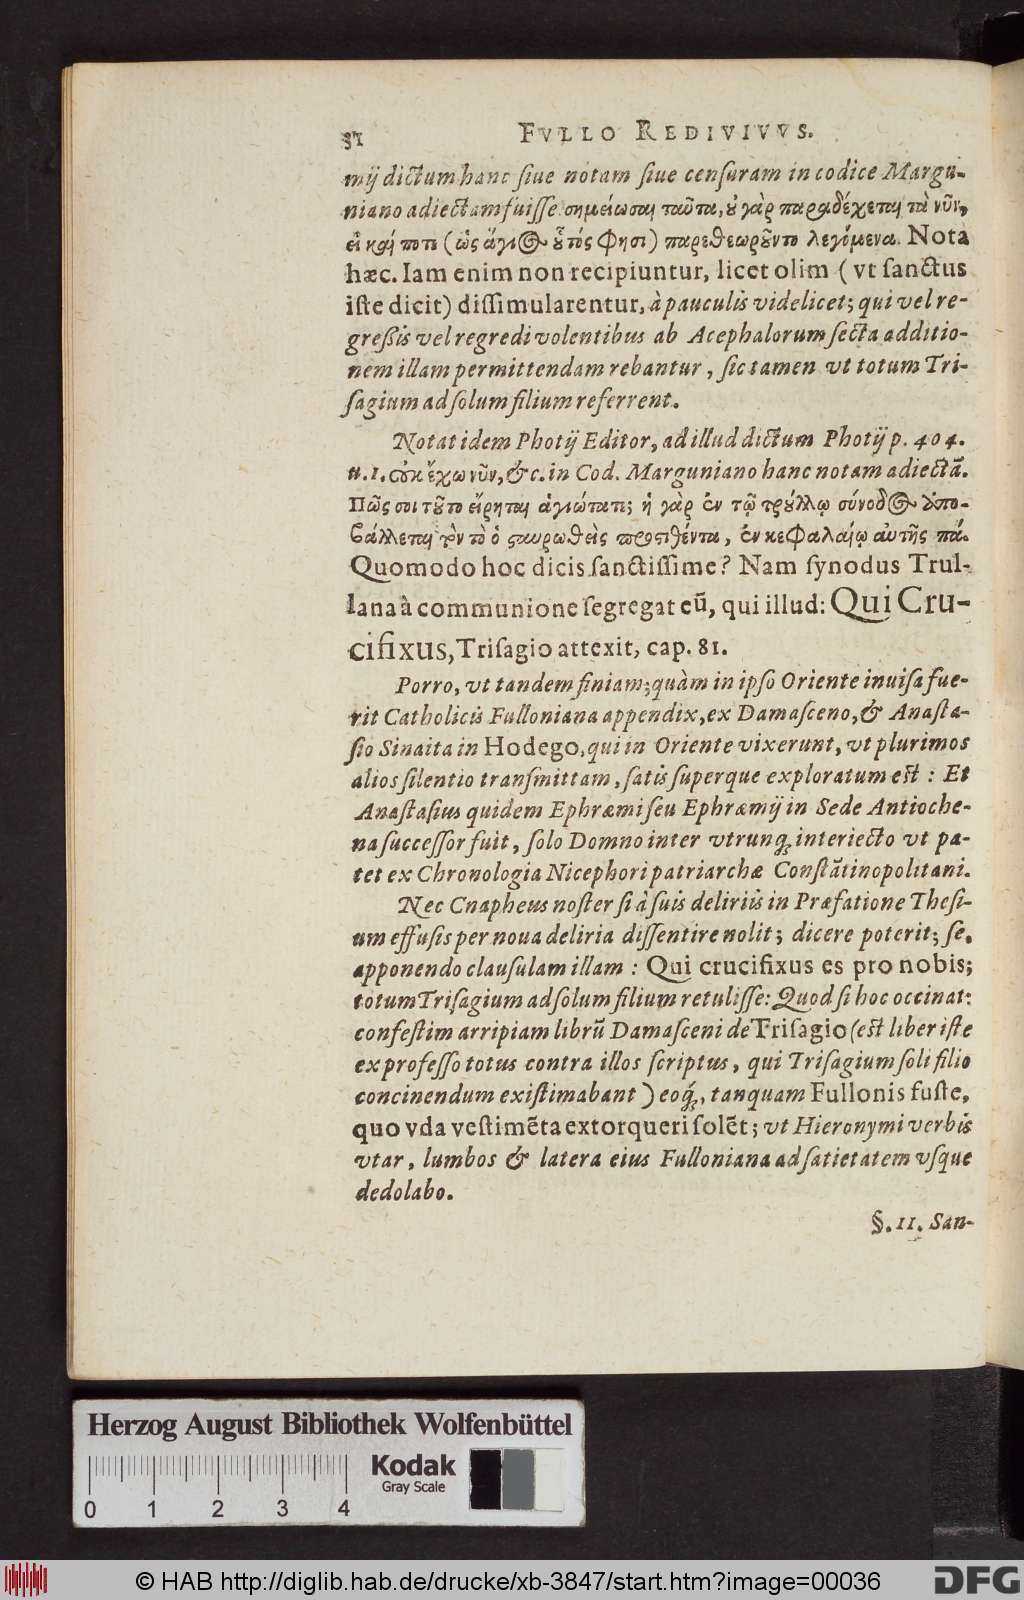 31 FVLLO REDIVIVVS.
mij dictum hanc ſiue notam ſiue cenſuram in codice Margu-
niano adiectam fuiſſe. σημείωσαι ταῦτα, ὐ γὰρ παραδέχεται τὰ νῦν,
εἰ καί ποτι (ὡς ἅγιος ὗτός φησι) παρεθεωρῦντο λεγόμενα. Nota
hæc. Iam enim non recipiuntur, licet olim (vt ſanctus
iſte dicit) diſſimularentur, à pauculis videlicet; qui vel re-
greßis vel regredi volentibus ab Acephalorum ſecta additio-
nem illam permittendam rebantur, ſic tamen vt totum Tri-
ſagium ad ſolum filium referrent.
Notat idem Photij Editor, ad illud dictum Photij p. 404.
n. 1. οὐκ ἔχω νῦν, &c. in Cod. Marguniano hanc notam adiectã.
Πῶς σοι τῦτο εἴρηται ἁγιώτατε; ἡ γὰρ ἐν τῷ τρύλλῳ σύνοδος ὑπο-
βάλλεται τὸν τὸ ὁ σταυρωθεὶς προστιθέντα, ἐν κεφαλαίῳ αὐτῆς πά.
Quomodo hoc dicis ſanctiſſime? Nam ſynodus Trul-
lana à communione ſegregat eũ, qui illud: Qui Cru-
cifixus, Triſagio attexit, cap. 81.
Porro, vt tandem finiam; quàm in ipſo Oriente inuiſa fue-
rit Catholicis Fulloniana appendix, ex Damaſceno, & Anaſta-
ſio Sinaita in Hodego, qui in Oriente vixerunt, vt plurimos
alios ſilentio tranſmittam, ſatis ſuperque exploratum eſt: Et
Anaſtaſius quidem Ephræmi ſeu Ephræmij in Sede Antioche-
na ſucceſſor fuit, ſolo Domno inter vtrunq; interiecto vt pa-
tet ex Chronologia Nicephori patriarchæ Conſtãtinopolitani.
Nec Cnapheus noſter ſi à ſuis deliriis in Præfatione Theſi-
um effuſis per noua deliria diſſentire nolit; dicere poterit; ſe,
apponendo clauſulam illam: Qui crucifixus es pro nobis;
totum Triſagium ad ſolum filium retuliſſe: Quod ſi hoc occinat:
confeſtim arripiam librũ Damaſceni de Triſagio (eſt liber iſte
ex profeſſo totus contra illos ſcriptus, qui Triſagium ſoli filio
concinendum exiſtimabant) eoq́;, tanquam Fullonis fuſte,
quo vda veſtimẽta extorqueri ſolẽt; vt Hieronymi verbis
vtar, lumbos & latera eius Fulloniana ad ſatietatem vſque
dedolabo.
§. 11. San-
Herzog August Bibliothek Wolfenbüttel
Kodak
Gray Scale
0 1 2 3 4
© HAB http://diglib.hab.de/drucke/xb-3847/start.htm?image=00036
DFG